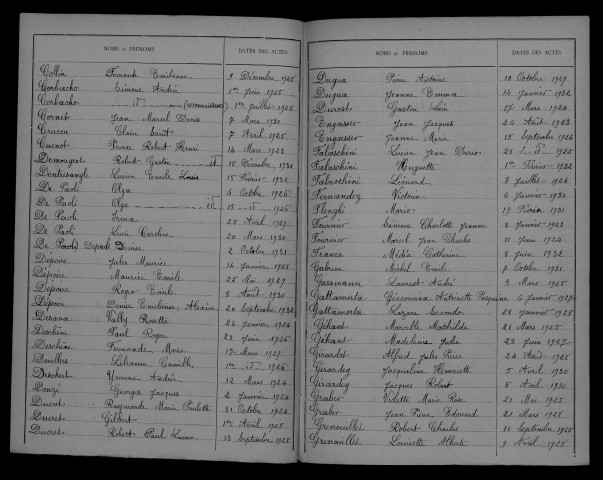 NOMS et PRENOMS DATES DES ACTES
Collin Fernande Emilienne 9 Décembre 1928
Corbacho Simone André 1er Juin 1925
Corbacho _d°_ (reconnaissance) 1er Juillet 1925
Cornet Jean Marcel Denis 7 Mars 1930
7 Avril 1925
Cuenot Robert Henri 14 Mars 1923
Robert Gaston 15 Décembre 1931
Lucien Emile Louis 15 Février 1932
De Paoli Olga 4 Octobre 1926
De Paoli Olga _d°_ 18 _d°_ 1926
De Paoli Irma 25 Avril 1929
De Paoli Lucie Caroline 20 Mars 1930
Denise 2 Octobre 1931
Dépoire Jules Maurice 14 Janvier 1928
Dépoire Maurice Emile 25 Mai 1929
Dépoire Roger Emile 8 Août 1930
Dépoire Denise Emilienne 20 Septembre 1932
Desana Vally Rosetta 26 Janvier 1924
Deschêne Paul Roger 28 Juin 1926
Deschêne Fernande Marie 17 Mars 1929
Lilianne Camille 1er _d°_ 1926
Yvonne Andrée 12 Mars 1924
Donzé Georges Jacques 2 Janvier 1924
Ducret Raymonde Marie Paulette 31 Octobre 1924
Ducret Gilbert 1er Avril 1925
Ducret Robert Paul Lucien 13 Septembre 1928
NOMS et PRENOMS DATES DES ACTES
Dugua Pierre Antoine 10 Octobre 1929
Dugua Jeanne Emma 14 Janvier 1932
Durost Gaston 17 Mars 1924
Engasser Jean Jacques 26 Août 1923
Engasser Jeanne Marie 15 Septembre 1924
Falaschini Lucien Jean 28 _d°_ 1925
Falaschini Huguette 1er Février 1932
Léonard 3 Juillet 1924
Fernandez Victoria 6 Janvier 1930
Flenghi Mario 19 Février 1931
Fournier Simone Charlotte Jeanne 3 Janvier 1923
Fournier Marcel Jean Charles 11 Juin 1924
Franca Catherine 8 Juin 1932
Gabrion Michel Emile 7 Octobre 1931
Gassmann Laurent André 3 Mars 1925
Gattamorta Giacomina Antoinette 6 Janvier 1927
Gattamorta Lazare Secondo 28 Janvier 1928
Géhant Marcelle Mathilde 21 Mars 1925
Géhant Madeleine Julie 28 Juin 1927
Girardot Alfred Jules Pierre 24 Août 1928
Girardey Jacqueline Henriette 5 Avril 1930
Girardey Jacques Robert 8 Avril 1930
Graber Violette Marie Rose 21 Mai 1925
Graber Jean Pierre Edouard 21 Mars 1928
Grenouillet Robert Charles 10 Septembre 1925
Grenouillet Louisette Alberte 9 Avril 1928